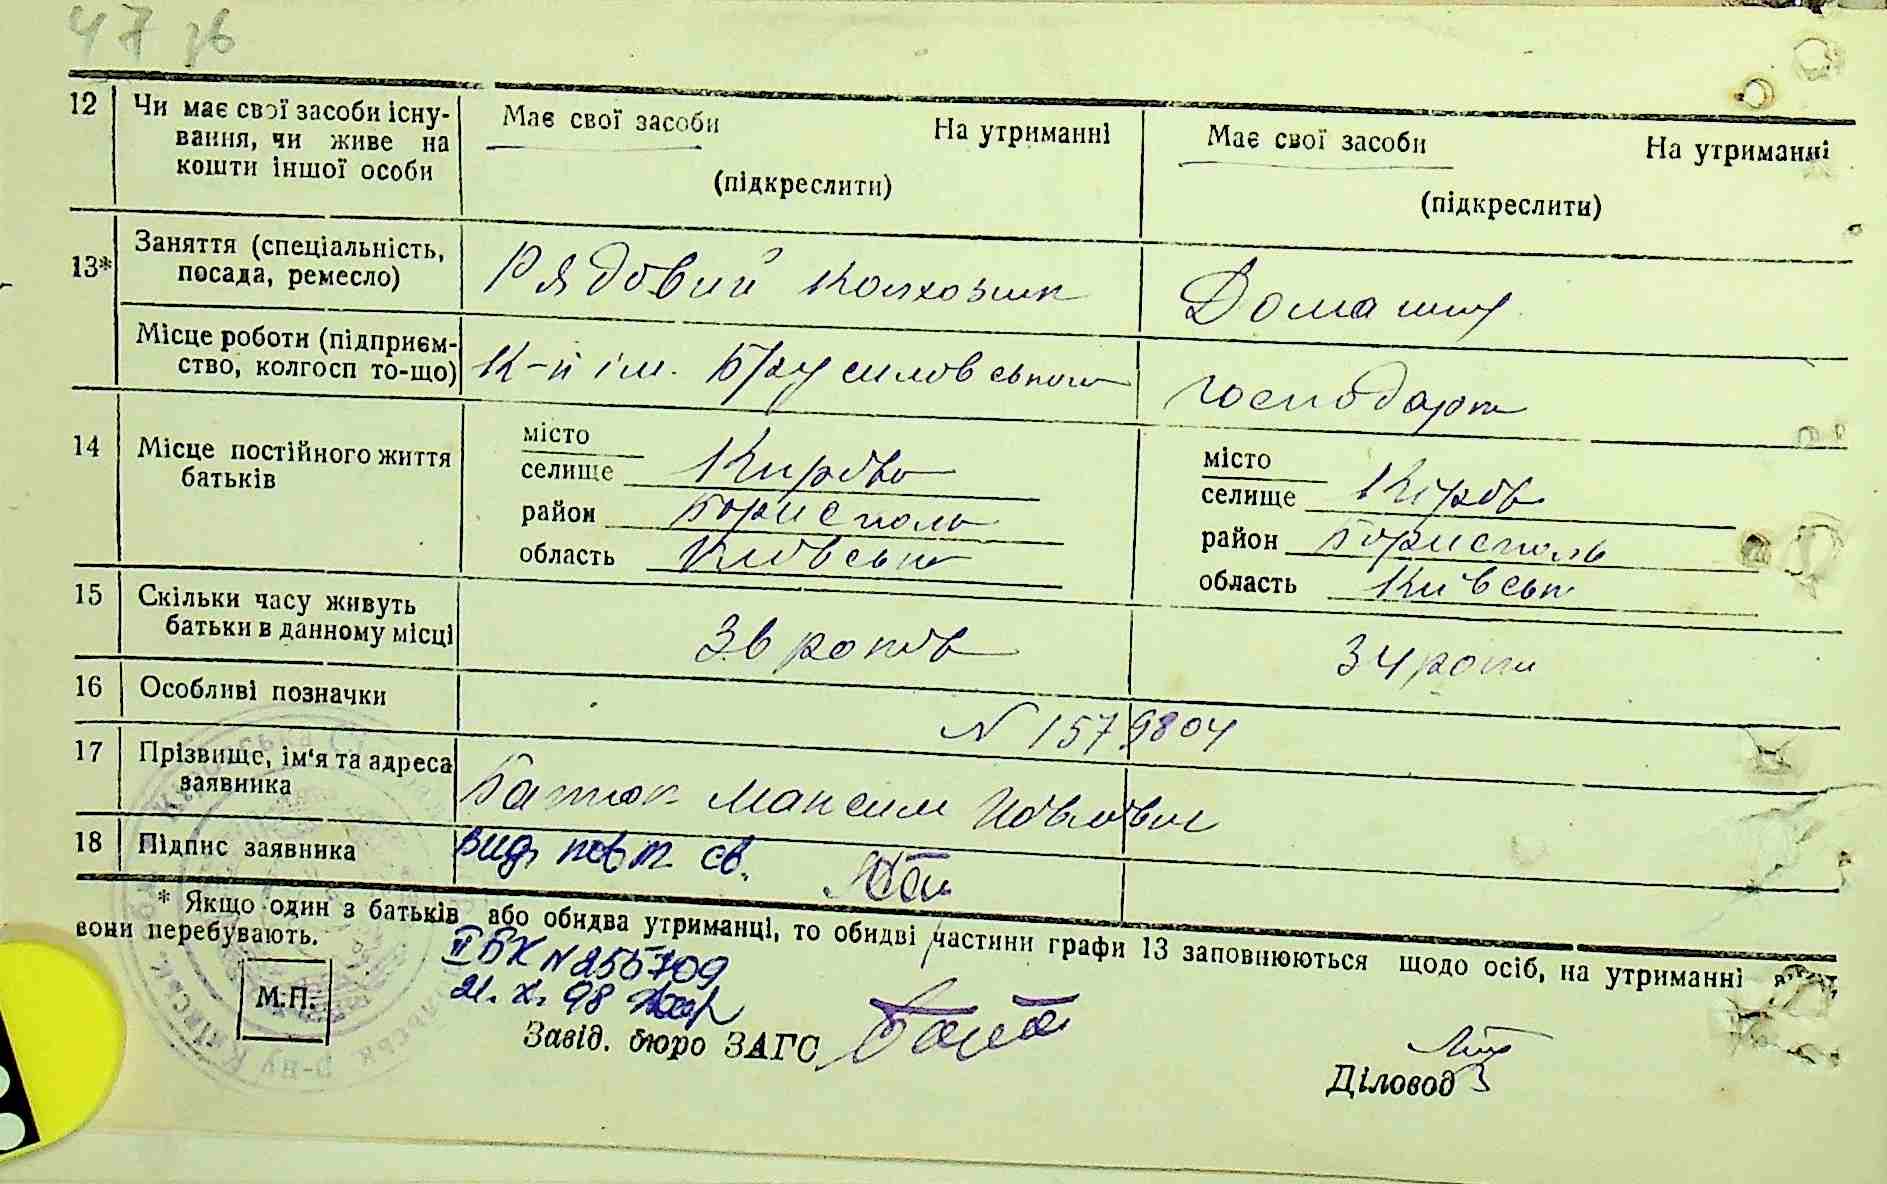 47 зв
12 Чи має свої засоби існу-
вання, чи живе на
кошти іншої особи
Має свої засоби На утриманні
(підкреслити)
Має свої засоби На утриманні
(підкреслити)
13* Заняття (спеціальність,
посада, ремесло)
Рядовий колхозник
Домашня
Місце роботи (підприєм-
ство, колгосп то-що)
К-п ім.
господарка
14 Місце постійного життя
батьків
місто
селище Кирово
район Бориспол
область Київська
місто
селище Кіров
район Бориспол
область Київськ
15 Скільки часу живуть
батьки в данному місці
36 років
34 роки
16 Особливі позначки
N 1579804
17 Прізвище, ім'я та адреса
заявника
Батюк Максим
18 Підпис заявника
вид. повт. св.
* Якщо один з батьків або обидва утриманці, то обидві частини графи 13 заповнюються щодо осіб, на утриманні
вони перебувають.
II БК N 255709
21. X. 98
М.П.
Завід. бюро ЗАГС
Діловод